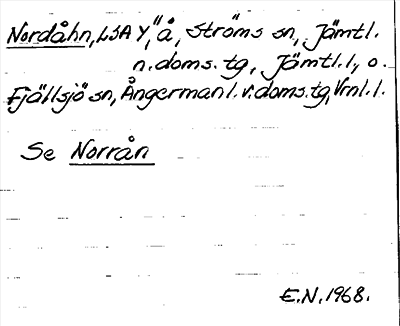 Nordåhn, LSA Y, "å, Ströms sn, Jämtl.
n. doms. tg, Jämtl. l., o.
Fjällsjö sn, Ångermanl. v. doms. tg, Vrnl. l.
Se Norrån
E.N. 1968.